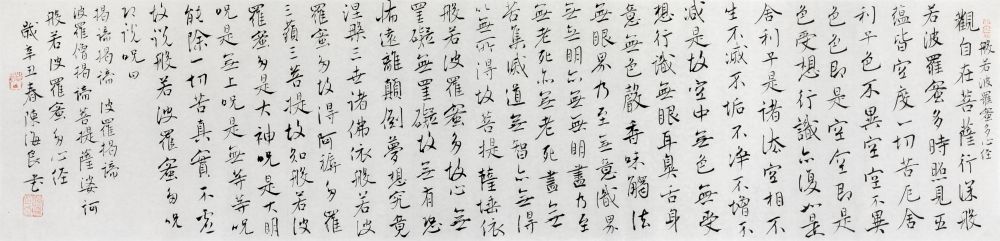 般若波羅蜜多心经
觀自在菩薩行深般
若波羅蜜多時照見五
蕴皆空度一切苦厄舍
利子色不異空空不異
色色即是空空即是
色受想行識亦復如是
舍利子是諸法空相不
生不滅不垢不淨不增不
減是故空中無色無受
想行識無眼耳鼻舌身
意無色聲香味觸法
無眼界乃至無意識界
無無明亦無無明盡乃至
無老死亦無老死盡無
苦集滅道無智亦無得
以無所得故菩提薩埵依
般若波羅蜜多故心無
罣礙無罣礙故無有恐
怖遠離顛倒夢想究竟
涅槃三世諸佛依般若波
羅蜜多故得阿耨多羅
三藐三菩提故知般若波
羅蜜多是大神咒是大明
咒是無上咒是無等等咒
能除一切苦真實不虛
故說般若波羅蜜多咒
即說咒曰
揭諦揭諦 波羅揭諦
波羅僧揭諦菩提薩婆訶
般若波羅蜜多心经
歲辛丑春陳海良書